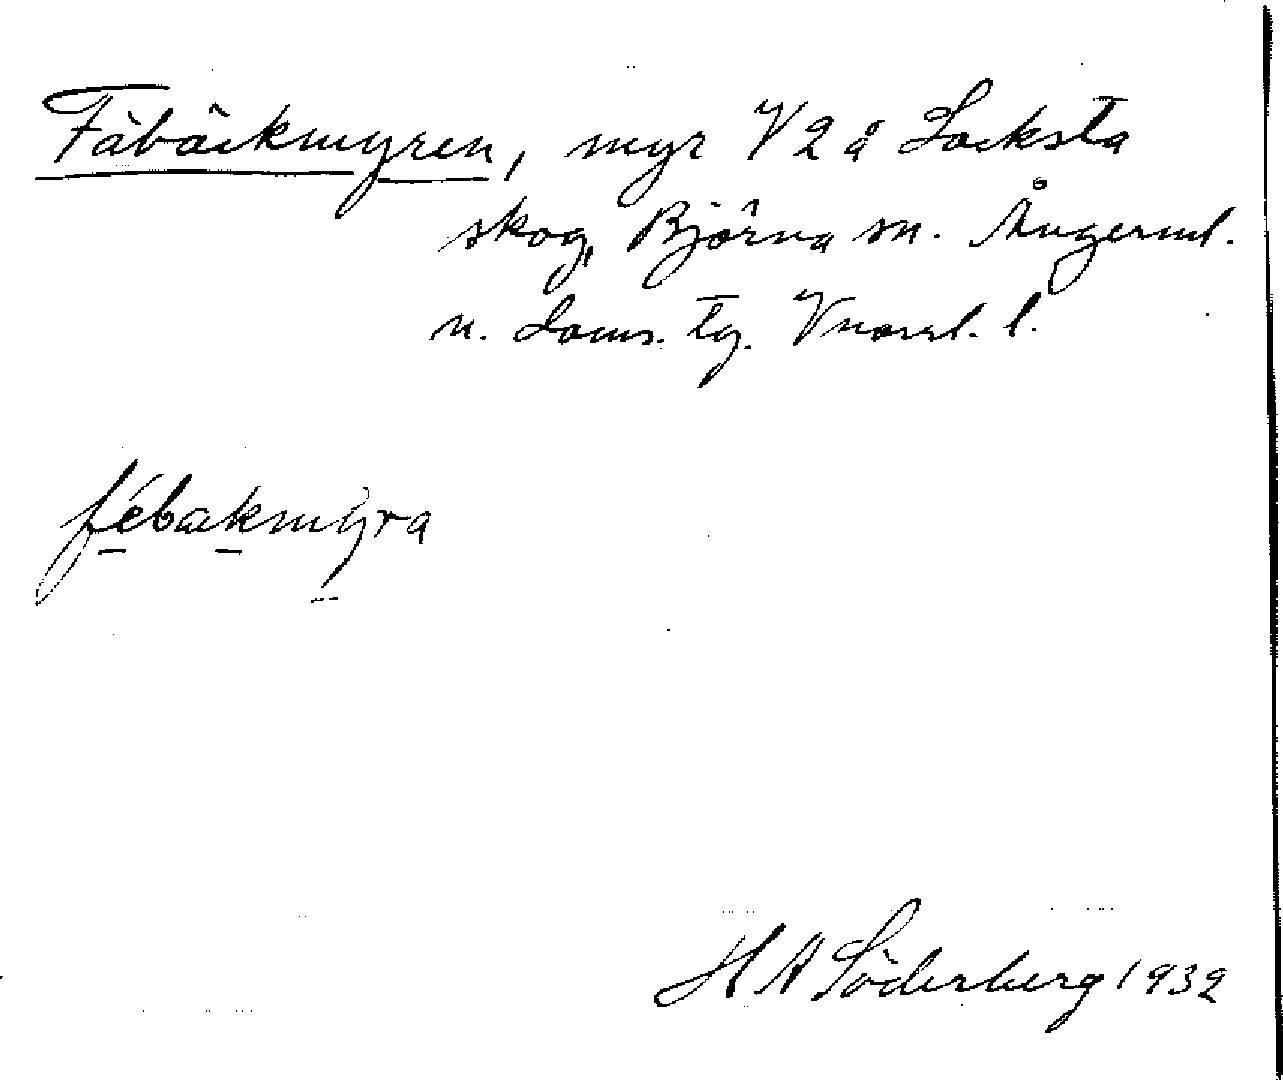 Fäbäckmyren, myr V 2 å Locksta
skog, Björna sn. Ångerml.
n. doms. tg. Vnorrl. l.
fébækmyra
H A Söderberg 1932